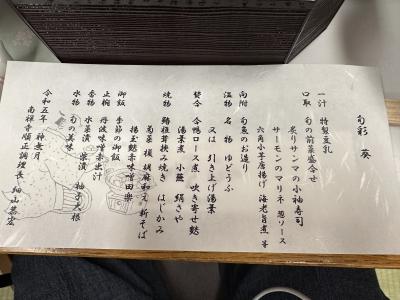 旬彩 葵
一汁 特製豆乳
口取 旬の前菜盛合せ
炙りサンマの小袖寿司
サーモンのマリネ 葱ソース
六角小芋唐揚げ 海老旨煮 羊
向附 旬魚のお造り
温物 名物 ゆどうふ
又は 引き上げ湯葉
焚合 合鴨ロース煮 吹き寄せ麩
湯葉煮 小蕪 絹さや
焼物 鰆柚茸挟み焼き はじかみ
菊菜 榎 胡麻和え 新そば
揚玉麩赤味噌田楽
御飯 季節の御飯
止椀 丹波味噌赤出汁
香物 水菜漬 柴漬 柚子大根
水物 旬の美味
令和五年 神無月
南禅寺順正調理長